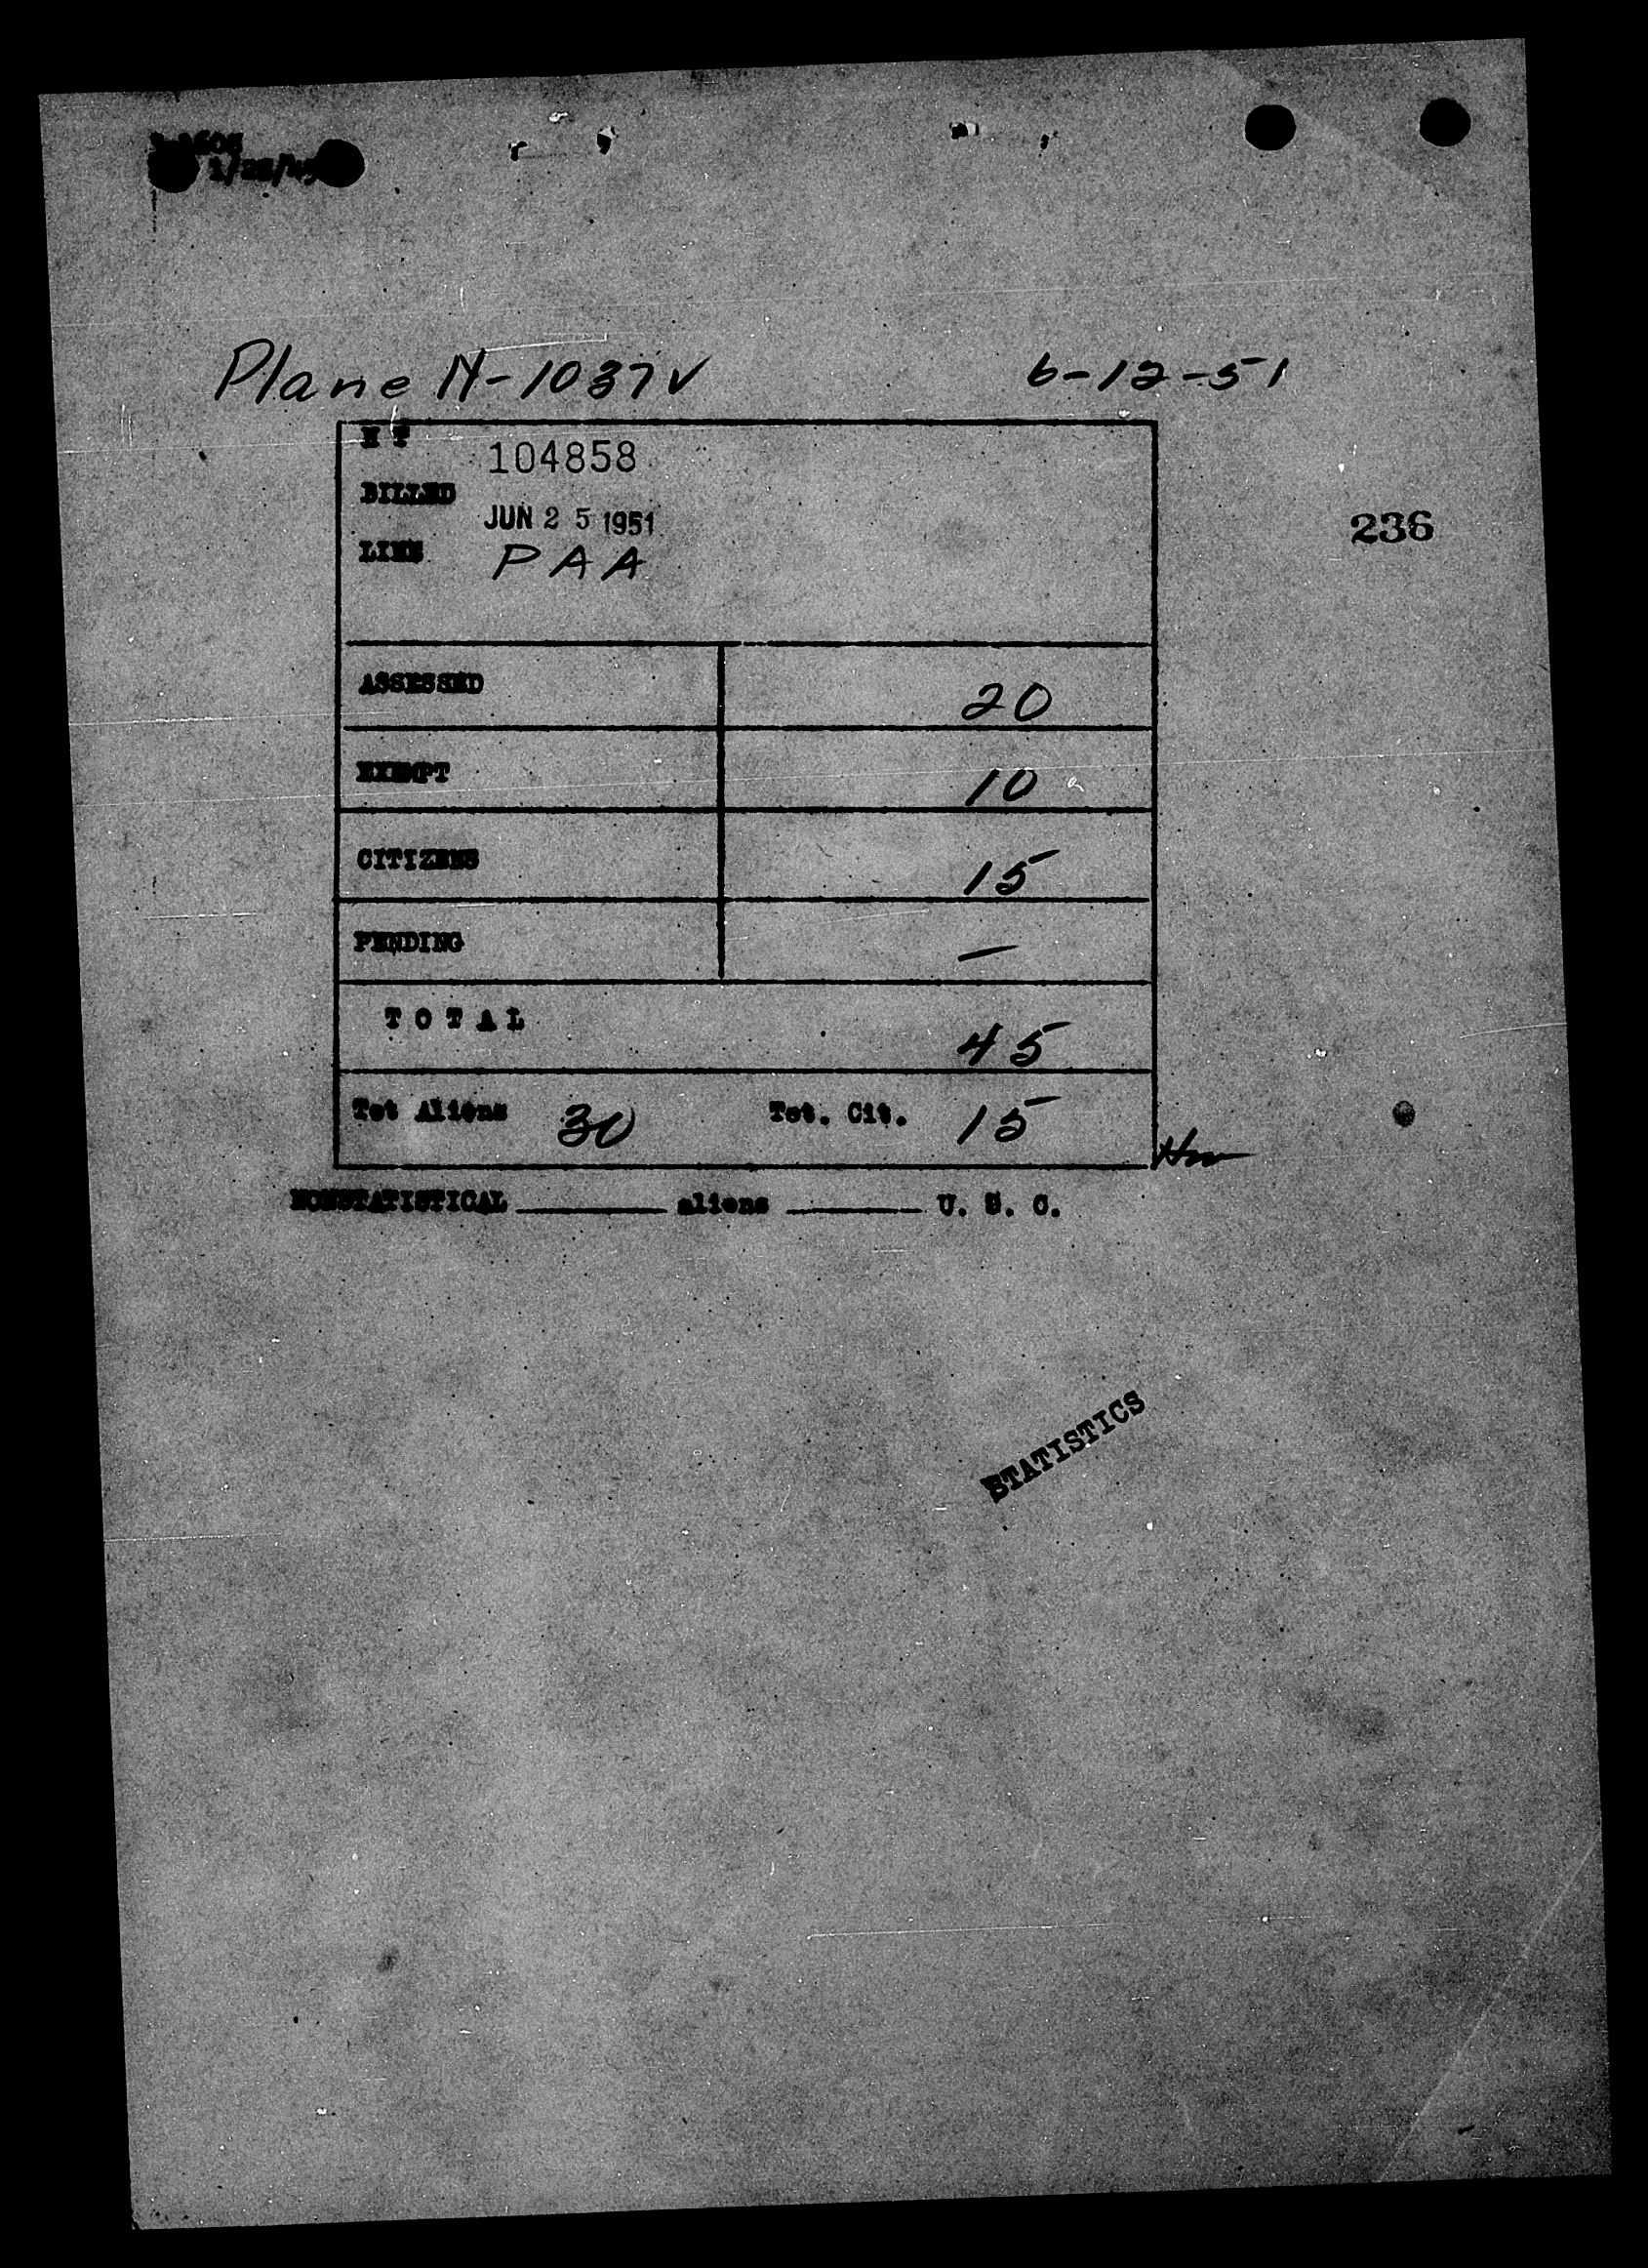 1/25/49
Plane N-1037V 6-12-51
H T 104858
BILLED
JUN 25 1951
LINE PAA
236
ASSESSED 20
EXEMPT 10
CITIZENS 15
PENDING —
TOTAL 45
Tot Aliens 30 Tot. Cit. 15
NONSTATISTICAL ______ aliens ______ U. S. C.
STATISTICS